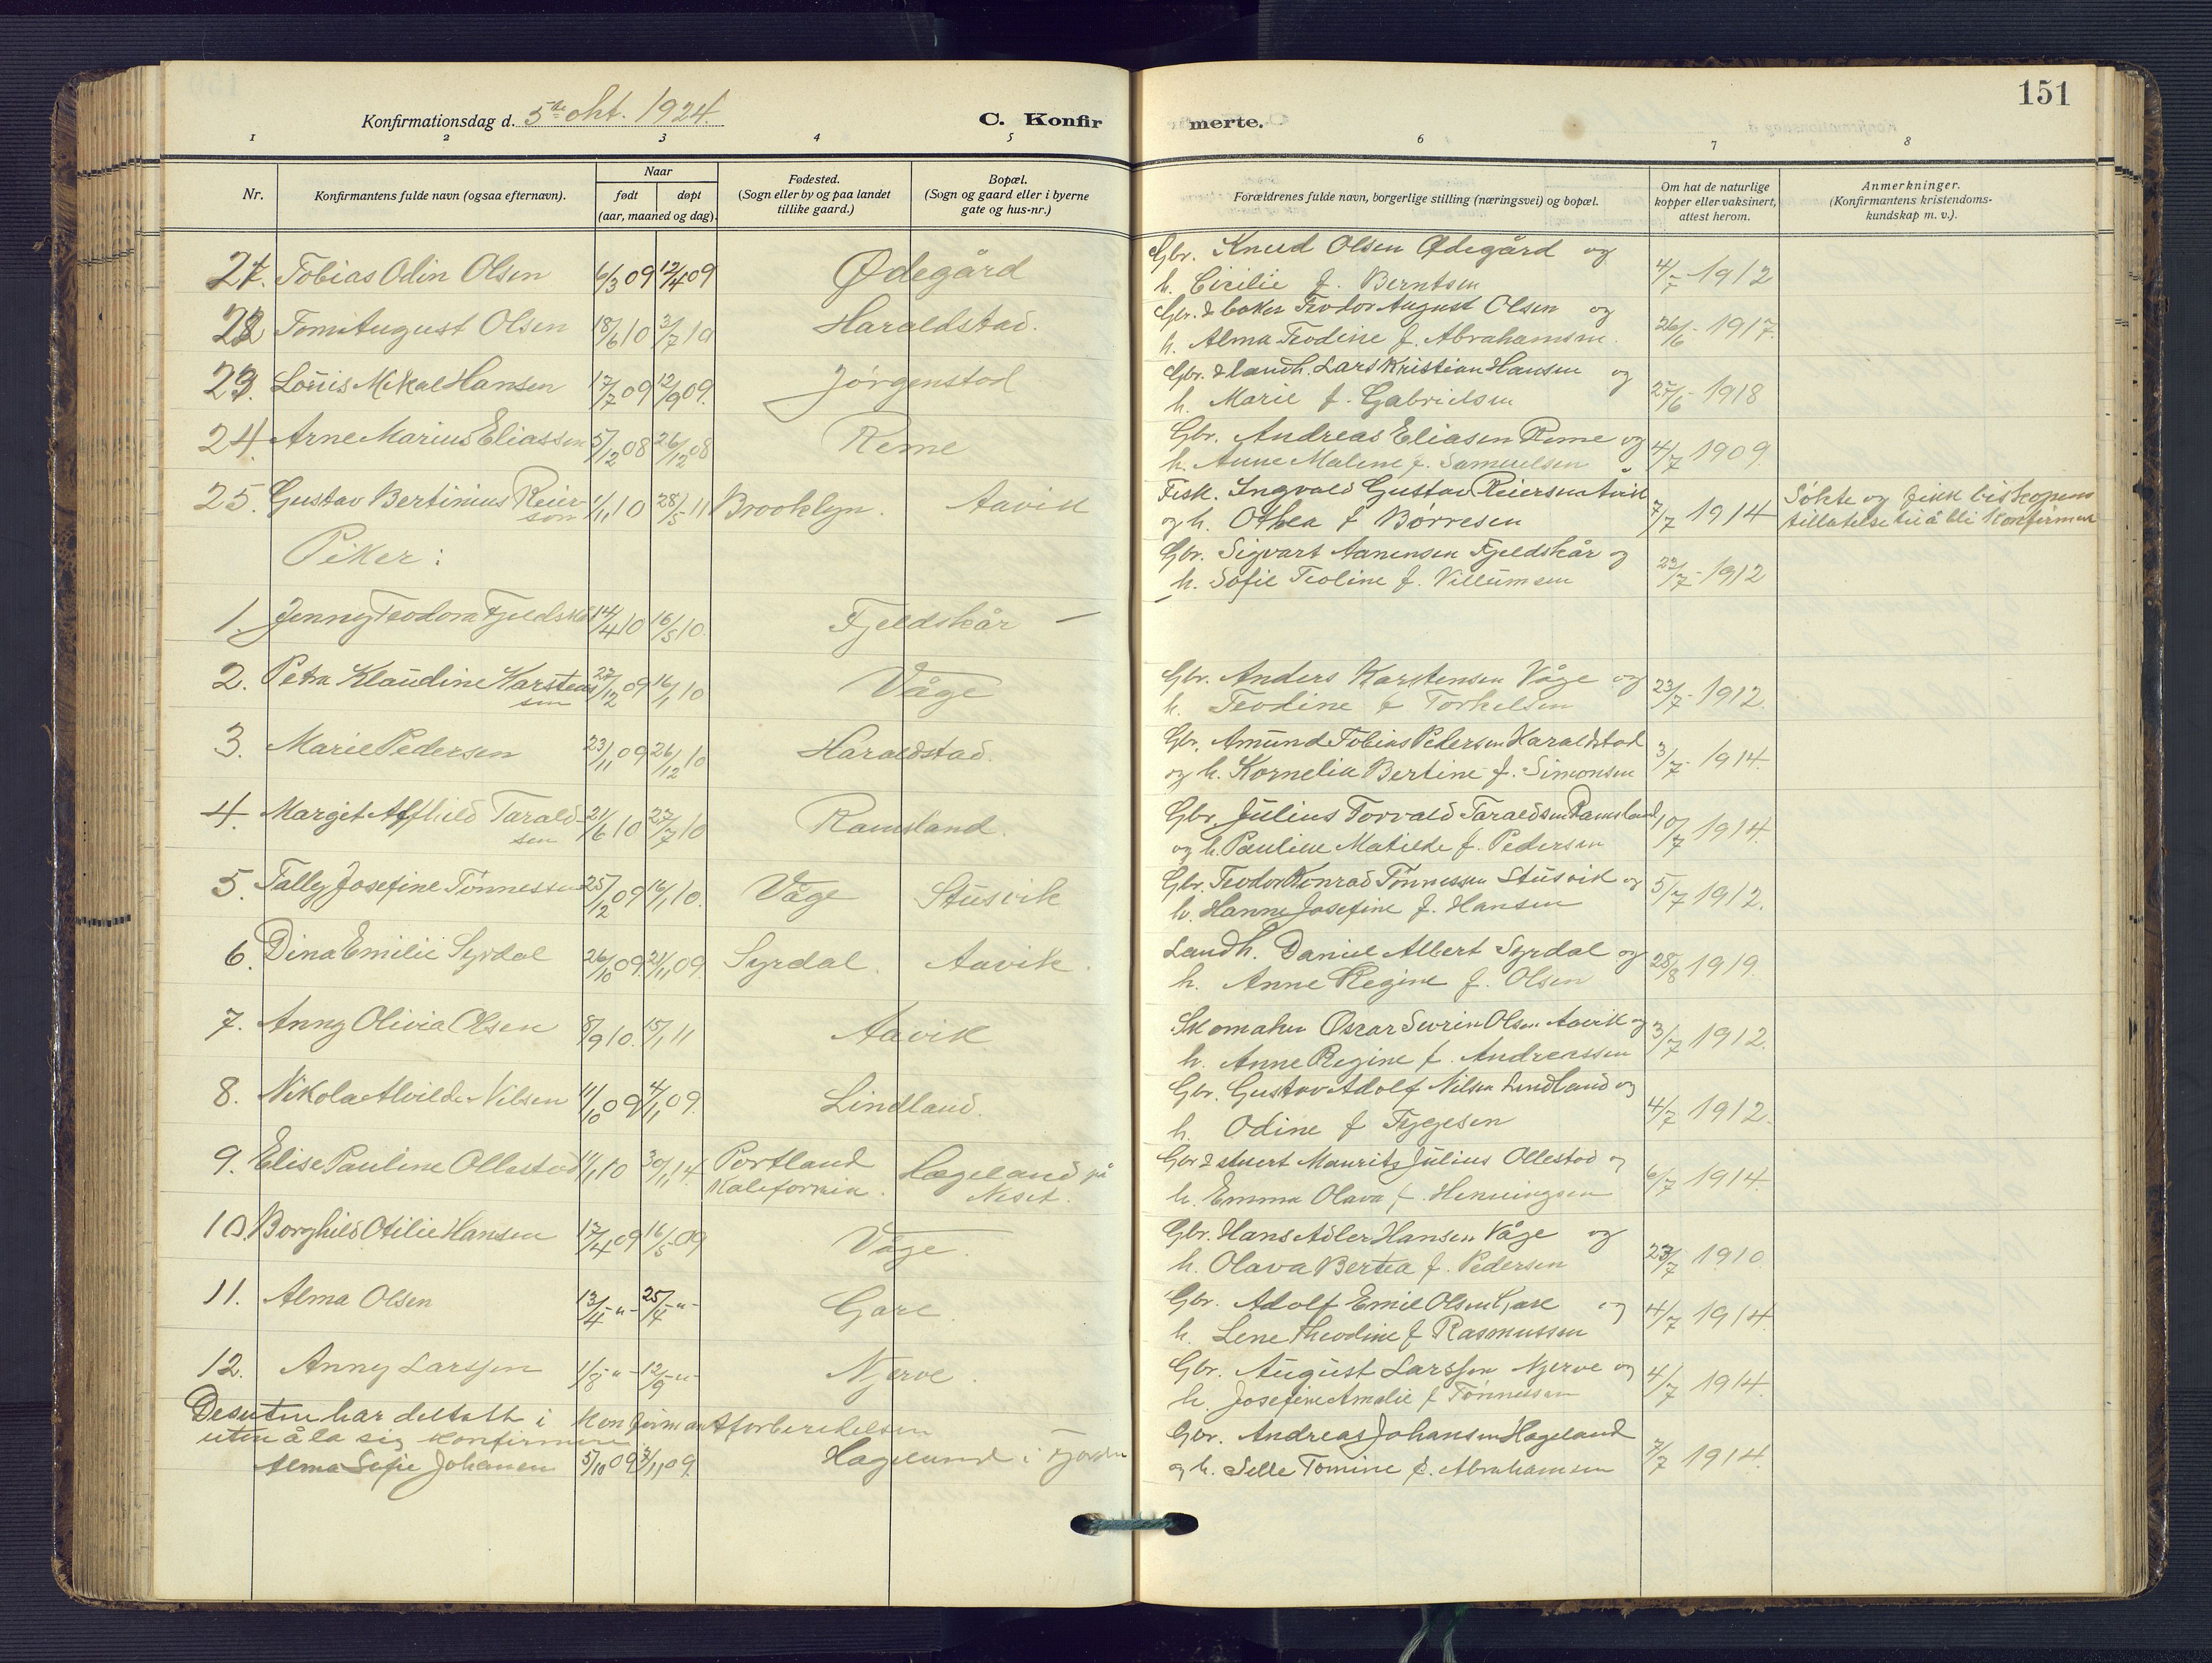 151
Konfirmationsdag d. 5te okt. 1924.
C. Konfir merte.
1 2 3 4 5 6 7 8
Nr.
Konfirmantens fulde navn (ogsaa efternavn).
Naar
født døpt
(aar, maaned og dag).
Fødested.
(Sogn eller by og paa landet
tillike gaard.)
Bopæl.
(Sogn og gaard eller i byerne
gate og hus-nr.)
Forældrenes fulde navn, borgerlige stilling (næringsvei) og bopæl.
Om hat de naturlige
kopper eller vaksinert,
attest herom.
Anmerkninger.
(Konfirmantens kristendoms-
kundskap m. v.).
Gbr. Knud Olsen Ødegård og
21. Tobias Odin Olsen 6/3 09 12/4 09 Ødegård 4/7 1912
h. Cicilie f. Berntsen
Gbr. & baker Teodor August Olsen og
22 Tom August Olsen 18/6 10 3/7 10 Haraldstad. 26/6 - 1917.
h. Alma Teodine f. Abrahamsen.
Gbr. & landh. Lars Kristian Hansen og
23. Louis Mikal Hansen 17/7 09 12/9 09. Jørgenstad 27/6 - 1918
h. Marie f. Gabrielsen
Gbr. Andreas Eliasen Reme og
24. Arne Marius Eliassen 5/12 08 26/12 08 Reme 4/7 1909.
h. Anne Malene f. Samuelsen
Fisk. Ingvald Gustav Reiersen Aavik
25. Gustav Bertinius Reier- 1/11 10 28/5 11 Brooklyn. Aavik 7/7 1914 Søkte og fikk biskopens
sen
og h. Othea f Børresen tillatelse til å bli konfirmert
Piker:
Gbr. Sigvart Aanensen Fjeldskår og
h. Sofie Teoline f. Villumsen 23/7 - 1912
1. Jenny Teodora Fjeldskår 14/4 10 16/5 10. Fjeldskår —
Gbr. Anders Karstensen Våge og
2. Petra Klaudine Karsten- 27/12 09 16/1 10 Våge 23/7 - 1912.
sen
h. Teodine f Torkelsen
Gbr. Amund Tobias Pedersen Haraldstad
3. Marie Pedersen 23/11 09 26/12 10 Haraldstad. 3/7 - 1914.
og h. Kornelia Bertine f. Simonsen
Gbr. Julius Torvald Taraldsen Ramsland
4. Margit Alfhild Tarald- 21/6 10 27/7 10 Ramsland. 10/7 1914.
sen
og h. Pauline Matilde f. Pedersen
Gbr. Teodor Konrad Tønnessen Stusvik og
5. Tally Josefine Tønnessen 25/12 09 16/1 10. Våge Stusvik 5/7 1912.
h. Hanne Josefine f. Hansen
Landh. Daniel Albert Syrdal og
6. Dina Emilie Syrdal 26/10 09. 21/11 09. Syrdal. Aavik. 28/8 1919.
h. Anne Regine f. Olsen
Skomaker Oscar Sevrin Olsen Aavik og
7. Anny Olivia Olsen 8/9 10. 15/1 11 Aavik 3/7 1912.
h. Anne Regine f. Andreassen
Gbr. Gustav Adolf Nilsen Lindland og
8. Nikola Alvilde Nilsen 11/10 09 4/11 09. Lindland. 4/7 1912.
h. Odine f Tygesen
Gbr & stuert Maurits Julius Ollestad og
9. Elise Pauline Ollestad 11/1 10 30/1 14. Portland Hageland på 6/7 1914.
Kalifornia. Neset.
h. Emma Olava f. Henningsen
Gbr. Hans Adler Hansen Våge og
10. Borghild Otilie Hansen 17/4 09 16/5 09 Våge. 23/7 1910
h. Olava Bertea f. Pedersen
Gbr. Adolf Emil Olsen Gare og
11. Alma Olsen 13/4 -"- 25/4 -"- Gare. 4/7 1914.
h. Lene Theodine f Rasmussen
Gbr. August Larssen Njerve og
12. Anny Larssen 1/8 -"- 12/9 -"- Njerve. 4/7 1914.
h. Josefine Amalie f Tønnessen
Desuten har deltatt i konfirmantforberedelsen
uten å la sig konfirmere
Gbr. Andreas Johansen Hageland
Alma Sofie Johansen 5/10 09 7/11 09. Hageland i Fjorden 7/7 1914.
og h. Selle Tomine f. Abrahamsen